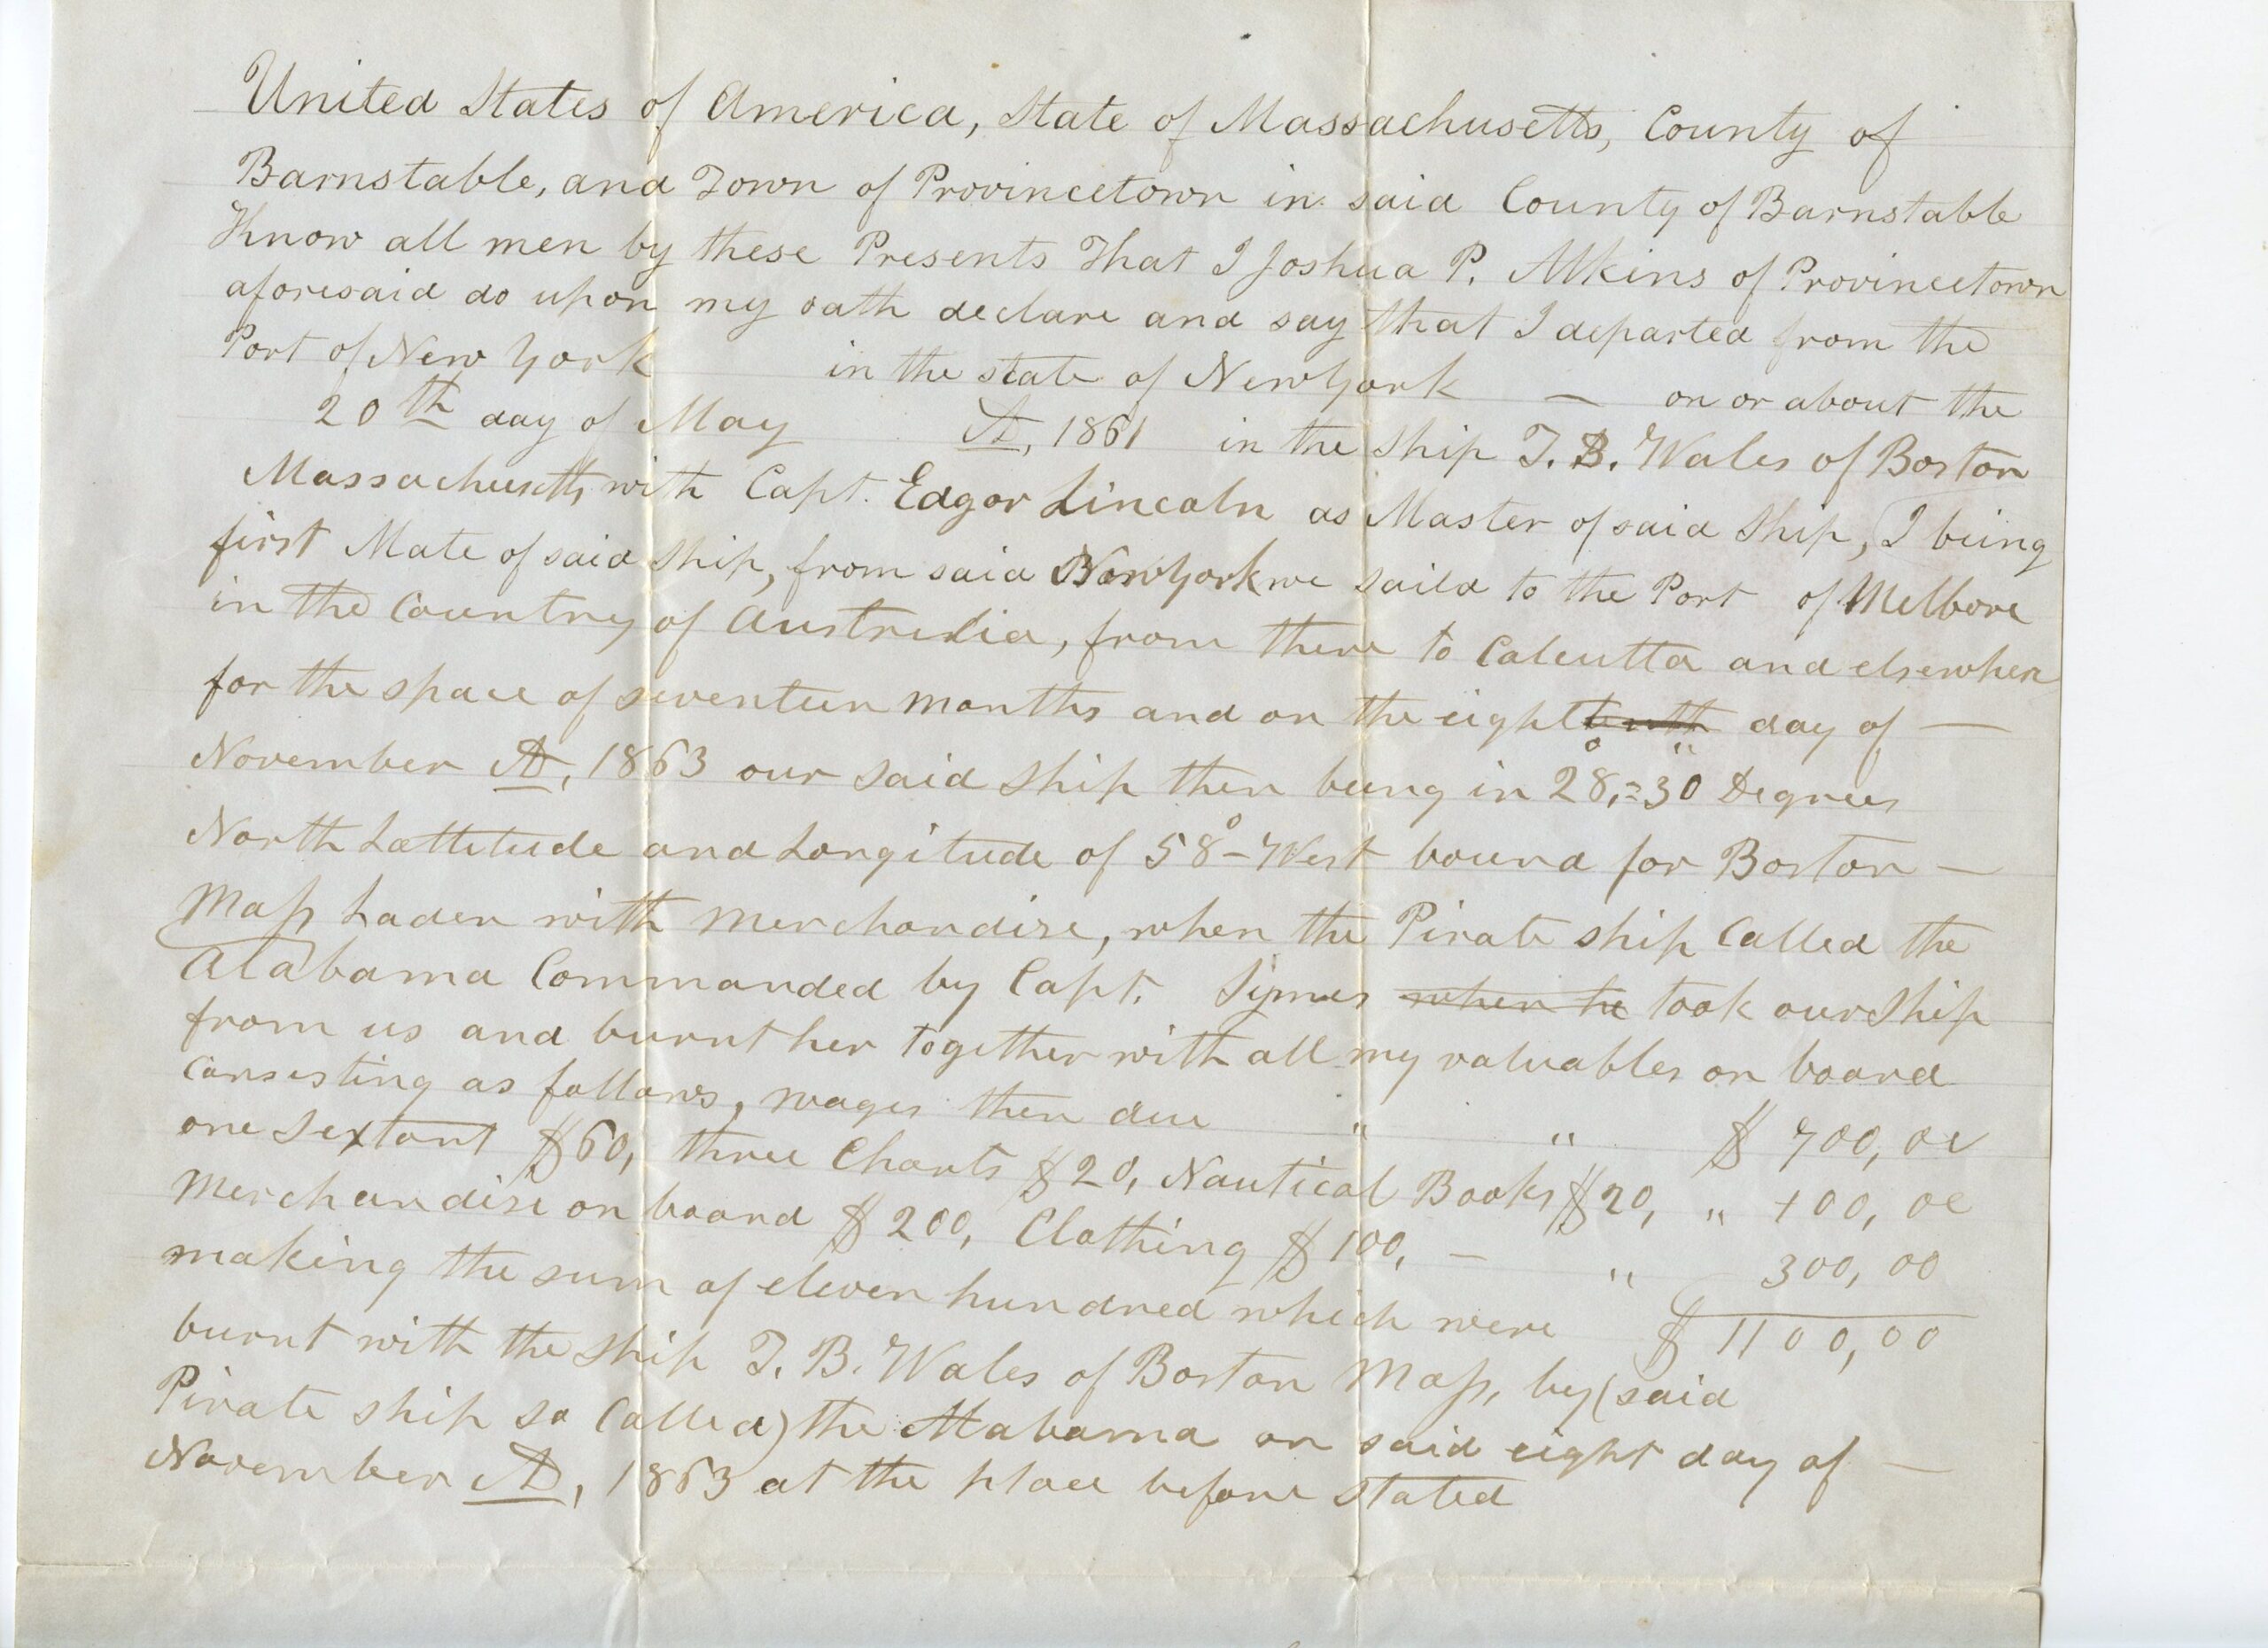 United States of America, State of Massachusetts, County of
Barnstable, and Town of Provincetown in said County of Barnstable
Know all men by these Presents That I Joshua P. Atkins of Provincetown
aforesaid do upon my oath declare and say that I departed from the
Port of New York in the state of New York — on or about the
20th day of May AD, 1861 in the ship T. B. Wales of Boston
Massachusetts, with Capt. Edgar Lincoln as Master of said Ship, I being
first Mate of said Ship, from said New York we saild to the Port of Melbore
in the Country of Australia, from there to Calcutta and elsewhere
for the space of seventeen months and on the eightteenth day of —
November AD, 1863 our said Ship then being in 28°,=30" Degrees
North Lattitude and Longitude of 58°- West bound for Boston —
Mass Laden with Merchandise, when the Pirate ship Called the
Alabama Commanded by Capt. Symes when he took our Ship
from us and burnt her together with all my valuables on board
Consisting as follows, wages then due " " $ 700, 00
one Sextant $60, three Charts $20, Nautical Books $20, " 100, 00
Merchandise on board $200, Clothing $100, — " 300, 00
making the sum of eleven hundred which were $ 1100,00
burnt with the Ship T. B. Wales of Boston Mass, by (said
Pirate ship so Called) the Alabama on said eight day of —
November AD, 1863 at the place before stated